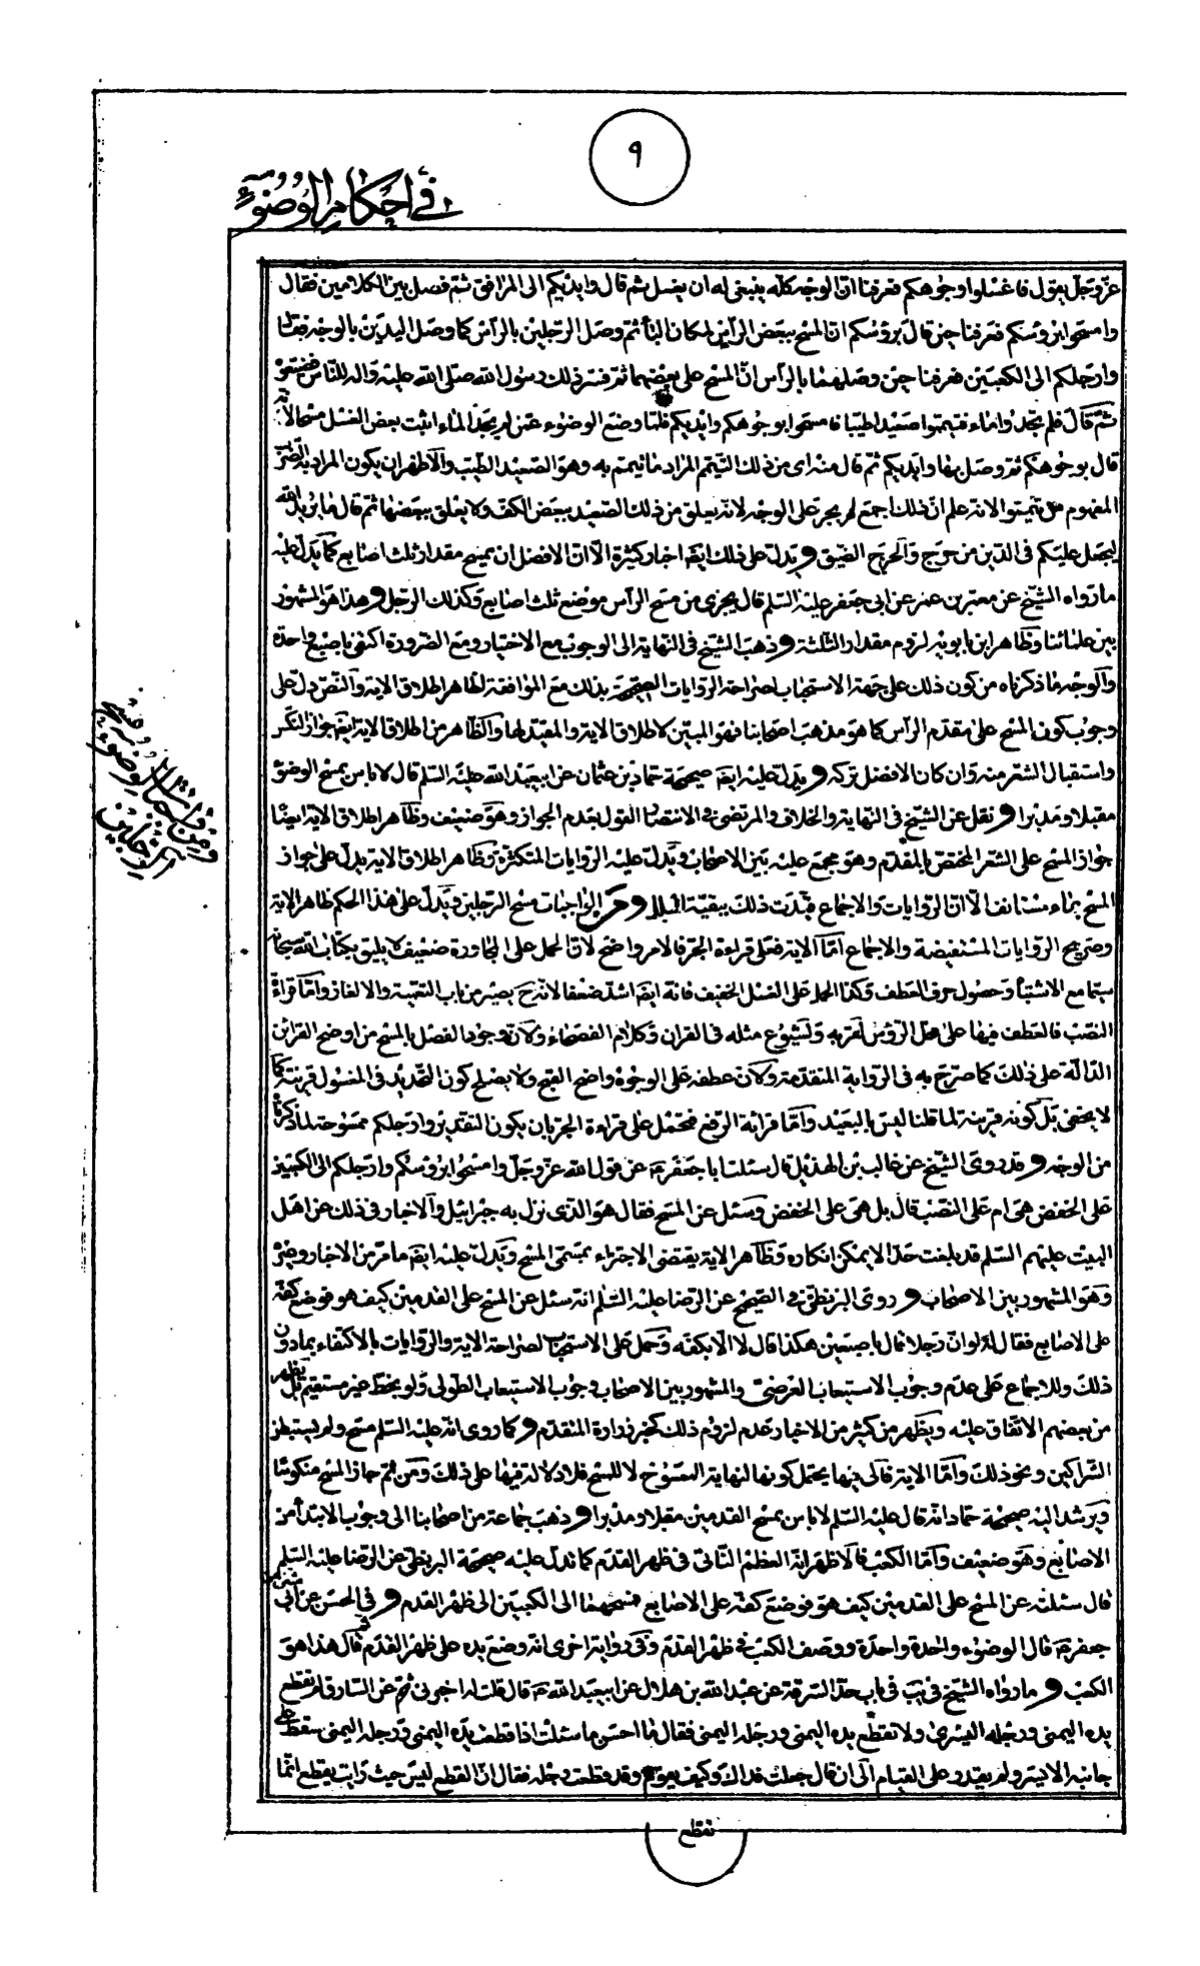 ٩
في احكام الوضوء
عزوجل يقول فاغسلوا وجوهكم فعرفنا ان الوجه كله ينبغي له ان يغسل ثم قال وايديكم الى المرافق ثم فصل بين الكلامين فقال
وامسحوا برؤسكم فعرفنا حين قال برؤسكم ان المسح ببعض الرأس لمكان الباء ثم وصل الرجلين بالرأس كما وصل اليدين بالوجه فقال
وارجلكم الى الكعبين فعرفنا حين وصلهما بالرأس ان المسح على بعضهما ثم فسر ذلك رسول الله صلى الله عليه واله للناس فضيعوه
ثم قال فلم تجدوا ماء فتيمموا صعيدا طيبا فامسحوا بوجوهكم وايديكم فلما وضع الوضوء عمن لم يجد الماء اثبت بعض الغسل مسحا لانه
قال بوجوهكم ثم وصل بها وايديكم ثم قال منه اى من ذلك التيمم المراد ما تيمم به وهو الصعيد الطيب والاظهر ان يكون المراد به
المفهوم من تيمموا لانه علم ان ذلك اجمع لم يجر على الوجه لانه يعلق من ذلك الصعيد ببعض الكف ولا يعلق ببعضها ثم قال ما يريد الله
ليجعل عليكم في الدين من حرج والحرج الضيق ويدل على ذلك ايضا اخبار كثيرة الا ان الافضل ان يمسح مقدار ثلث اصابع كما يدل عليه
ما رواه الشيخ عن معمر بن عمر عن ابى جعفر عليه السلم قال يجزى من مسح الرأس موضع ثلث اصابع وكذلك الرجل وهذا هو المشهور
بين علمائنا وظاهر ابن بابويه لزوم مقدار الثلثة وذهب الشيخ في النهاية الى الوجوب مع الاختيار ومع الضرورة اكتفى باصبع واحدة
والوجه ما ذكرناه من كون ذلك على جهة الاستحباب لصراحة الروايات الصحيحة بذلك مع الموافقة لظاهر اطلاق الاية والنص دل على
وجوب كون المسح على مقدم الرأس كما هو مذهب اصحابنا فهو المبين لاطلاق الاية والمقيد لها والظاهر من اطلاق الاية ايضا جواز النكس
واستقبال الشعر منه وان كان الافضل تركه ويدل عليه ايضا صحيحة حماد بن عثمان عن ابيعبد الله عليه السلم قال لا باس بمسح الوضوء
مقبلا ومدبرا ونقل عن الشيخ في النهاية والخلاف والمرتضى في الانتصار القول بعدم الجواز وهو ضعيف وظاهر اطلاق الاية ايضا
جواز المسح على الشعر المختص بالمقدم وهو مجمع عليه بين الاصحاب ويدل عليه الروايات المتكثرة وظاهر اطلاق الاية يدل على جواز
المسح بماء مستانف الا ان الروايات والاجماع قيدت ذلك ببقية البلل ومن الواجبات مسح الرجلين ويدل على هذا الحكم ظاهر الاية
وصريح الروايات المستفيضة والاجماع اما الاية فعلى قراءة الجر فالامر واضح لان الحمل على المجاورة ضعيف لا يليق بكتاب الله سبحانه
سيما مع الاشتباه وحصول حرف العطف وكذا الحمل على الغسل الخفيف فانه ايضا اشد ضعفا لانه ح يصير من باب التعمية والالغاز واما قراءة
النصب فالعطف فيها على محل الرؤس لقربه ولشيوع مثله في القران وكلام الفصحاء ولان وجود الفصل بالمسح من اوضح القرائن
الدالة على ذلك كما صرح به في الرواية المتقدمة ولان عطفه على الوجوه واضح القبح ولا يصلح كون التحديد في المغسول قرينة كما
لا يخفى بل كونه قرينة لما قلنا ليس بالبعيد واما قرائة الرفع فتحمل على قراءة الجر بان يكون التقدير وارجلكم ممسوحة لما ذكرنا
من الوجه وقد روى الشيخ عن غالب بن الهذيل قال سئلت ابا جعفر ع عن قول الله عزوجل وامسحوا برؤسكم وارجلكم الى الكعبين
على الخفض هى ام على النصب قال بل هى على الخفض وسئل عن المسح فقال هو الذى نزل به جبرائيل والاخبار في ذلك عن اهل
البيت عليهم السلم قد بلغت حدا لا يمكن انكاره وظاهر الاية يقتضى الاجتزاء بمسمى المسح ويدل عليه ايضا ما مر من الاخبار وغيره
وهو المشهور بين الاصحاب وروى البزنطى في الصحيح عن الرضا عليه السلم انه سئل عن المسح على القدمين كيف هو فوضع كفه
على الاصابع فقال له لو ان رجلا قال باصبعين هكذا قال لا الا بكفه وحمل على الاستحباب لصراحة الاية والروايات بالاكتفاء بما دون
ذلك وللاجماع على عدم وجوب الاستيعاب العرضى والمشهور بين الاصحاب وجوب الاستيعاب الطولى ولو بخط غير مستقيم بل يظهر
من بعضهم الاتفاق عليه ويظهر من كثير من الاخبار عدم لزوم ذلك كخبر زرارة المتقدم وكما روى انه عليه السلم مسح ولم يستبطن
الشراكين ونحو ذلك واما الاية فالى فيها يحتمل كونها لنهاية الممسوح لا للمسح فلا دلالة فيها على ذلك ومن ثم جاز المسح منكوسا
ويرشد اليه صحيحة حماد انه قال عليه السلم لا باس بمسح القدمين مقبلا ومدبرا وذهب جماعة من اصحابنا الى وجوب الابتداء من
الاصابع وهو ضعيف واما الكعب فالاظهر انه العظم الناتى في ظهر القدم كما تدل عليه صحيحة البزنطى عن الرضا عليه السلم
قال سئلته عن المسح على القدمين كيف هو فوضع كفه على الاصابع فمسحهما الى الكعبين الى ظهر القدم وفي الحسن عن ابى
جعفر ع قال الوضوء واحدة واحدة ووصف الكعب في ظهر القدم وفي رواية اخرى انه وضع يده على ظهر القدم قال هذا هو
الكعب وما رواه الشيخ في يب في باب حد السرقة عن عبد الله بن هلال عن ابيعبد الله ع قال قلت له اخبرنى عن السارق لم تقطع
يده اليمنى ورجله اليسرى ولا تقطع يده اليمنى ورجله اليمنى فقال ما احسن ما سئلت اذا قطعت يده اليمنى ورجله اليمنى سقط على
جانبه الايسر ولم يقدر على القيام الى ان قال جعلت فداك وكيف يقوم وقد قطعت رجله فقال ان القطع ليس حيث رايت يقطع انما
تقطع
ومن واجبات الوضوء
الرجلين